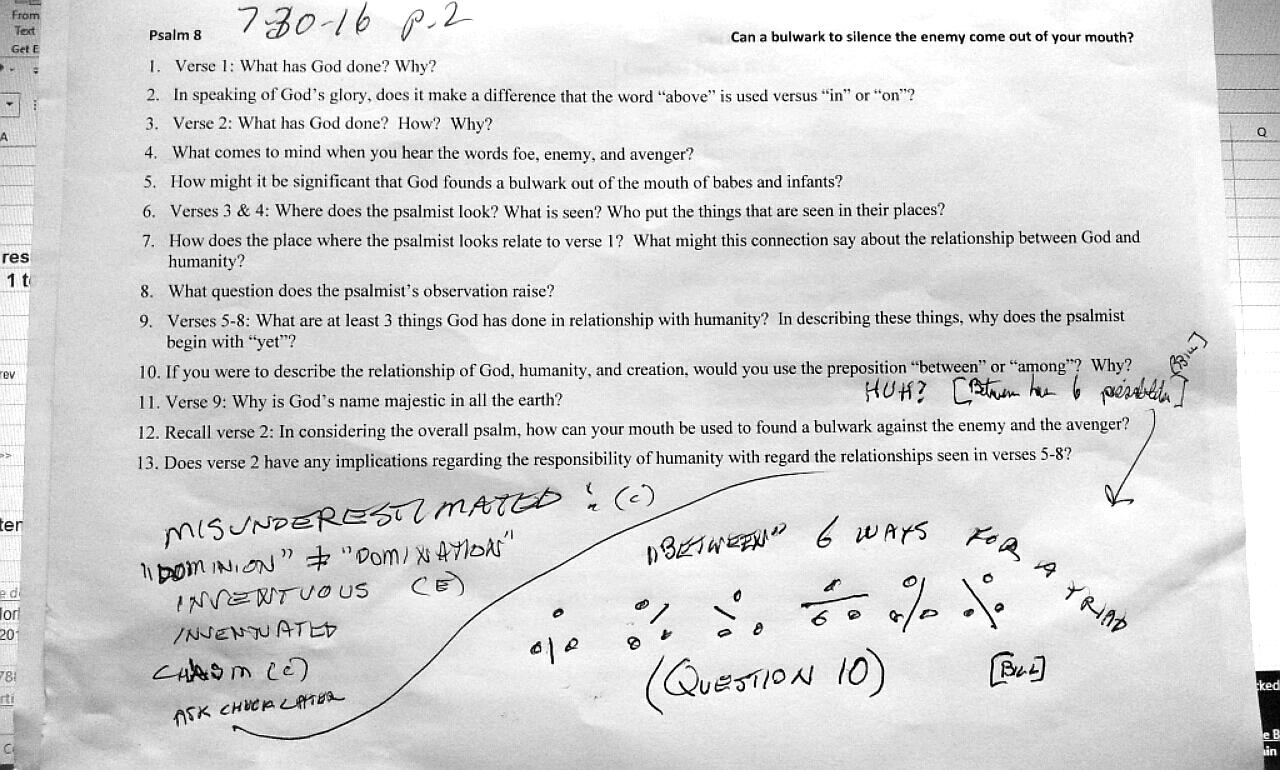 From
Text
Get E
A
res
1 t
rev
>>
ten
e d
lor
20
78
rti
C
Q
ked
e B
in
7-30-16 p.2
Psalm 8
Can a bulwark to silence the enemy come out of your mouth?
1. Verse 1: What has God done? Why?
2. In speaking of God's glory, does it make a difference that the word “above” is used versus “in” or “on”?
3. Verse 2: What has God done? How? Why?
4. What comes to mind when you hear the words foe, enemy, and avenger?
5. How might it be significant that God founds a bulwark out of the mouth of babes and infants?
6. Verses 3 & 4: Where does the psalmist look? What is seen? Who put the things that are seen in their places?
7. How does the place where the psalmist looks relate to verse 1? What might this connection say about the relationship between God and
humanity?
8. What question does the psalmist's observation raise?
9. Verses 5-8: What are at least 3 things God has done in relationship with humanity? In describing these things, why does the psalmist
begin with “yet”?
10. If you were to describe the relationship of God, humanity, and creation, would you use the preposition “between” or “among”? Why?
[Bill]
HUH? [Between has 6
11. Verse 9: Why is God's name majestic in all the earth?
12. Recall verse 2: In considering the overall psalm, how can your mouth be used to found a bulwark against the enemy and the avenger?
13. Does verse 2 have any implications regarding the responsibility of humanity with regard the relationships seen in verses 5-8?
MISUNDERESTIMATED : (C)
"DOMINION" ≠ "DOMINATION"
INVENTUOUS (E)
INVENTUATED
CHASM (C)
ASK CHUCK LATER
"BETWEEN" 6 WAYS FOR A TRIAD
(QUESTION 10)
[BILL]